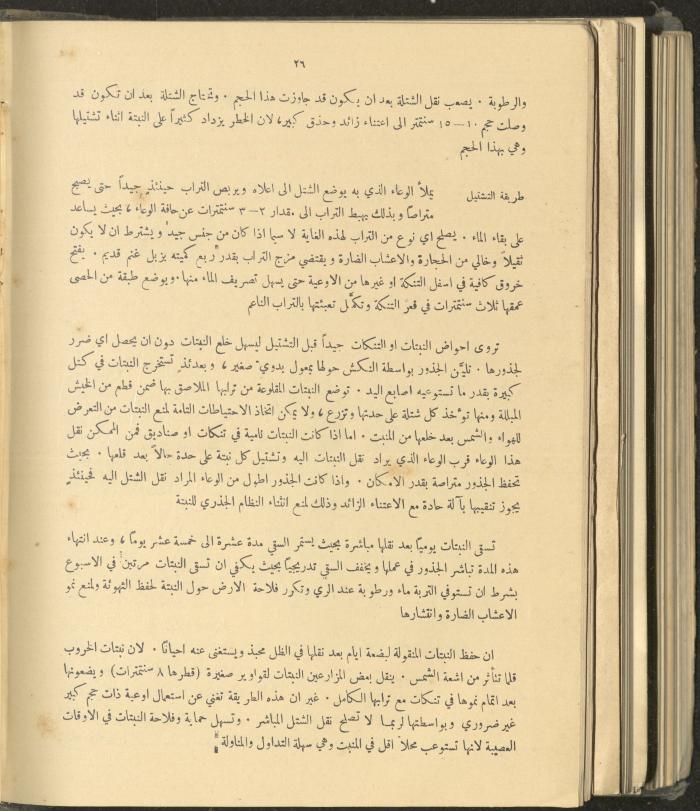 ٢٦
والرطوبة . يصعب نقل الشتلة بعد ان يكون قد جاوزت هذا الحجم . وتحتاج الشتلة بعد ان تكون قد
وصلت حجم ١٠ – ١٥ سنتمتر الى اعتناء زائد وحذق كبير، لان الخطر يزداد كثيراً على النبتة اثناء تشتيلها
وهي بهذا الحجم
طريقة التشتيل يملأ الوعاء الذي به يوضع الشتل الى اعلاه ويربص التراب حينئذٍ جيداً حتى يصبح
متراصاً وبذلك يهبط التراب الى مقدار ٢ – ٣ سنتمترات عن حافة الوعاء، بحيث يساعد
على بقاء الماء . يصلح اي نوع من التراب لهذه الغاية لا سيما اذا كان من جنس جيد ويشترط ان لا يكون
ثقيلاً وخالي من الحجارة والاعشاب الضارة ويقتضي مزج التراب بقدر ربع كميته بزبل غنم قديم . يفتح
خروق كافية في اسفل التنكة او غيرها من الاوعية حتى يسهل تصريف الماء منها. ويوضع طبقة من الحصى
عمقها ثلاث سنتمترات في قعر التنكة وتكمّل تعبئتها بالتراب الناعم
تروى احواض النبتات او التنكات جيداً قبل التشتيل ليسهل خلع النبتات دون ان يحصل اي ضرر
لجذورها . تليّن الجذور بواسطة النكش حولها بمعول يدوي صغير، وبعدئذٍ تستخرج النبتات في كتل
كبيرة بقدر ما تستوعبه اصابع اليد . توضع النبتات المقلوعة من ترابها الملاصق بها ضمن قطع من الخيش
المبللة ومنها تؤخذ كل شتلة على حدتها وتزرع، ولا يمكن اتخاذ الاحتياطات التامة لمنع النبتات من التعرض
للهواء والشمس بعد خلعها من المنبت . اما اذا كانت النبتات نامية في تنكات او صناديق فمن الممكن نقل
هذا الوعاء قرب الوعاء الذي يراد نقل النبتات اليه وتشتيل كل نبتة على حدة حالاً بعد قلعها . بحيث
تحفظ الجذور متراصة بقدر الامكان . واذا كانت الجذور اطول من الوعاء المراد نقل الشتل اليه فحينئذٍ
يجوز تنقيبها بآلة حادة مع الاعتناء الزائد وذلك لمنع انثناء النظام الجذري للنبتة
تسقى النبتات يومياً بعد نقلها مباشرة بحيث يستمر السقي مدة عشرة الى خمسة عشر يوماً، وعند انتهاء
هذه المدة تباشر الجذور في عملها ويخفف السقي تدريجياً بحيث يكفي ان تسقى النبتات مرتين في الاسبوع
بشرط ان تستوفي التربة ماء ورطوبة عند الري وتكرر فلاحة الارض حول النبتة لحفظ التهوئة ولمنع نمو
الاعشاب الضارة وانتشارها
ان حفظ النبتات المنقولة لبضعة ايام بعد نقلها في الظل محبذ ويستغنى عنه احياناً . لان نبتات الخروب
قلما تتأثر من اشعة الشمس . ينقل بعض المزارعين النبتات لقواوير صغيرة (قطرها ٨ سنتمترات) ويضعونها
بعد اتمام نموها في تنكات مع ترابها الكامل . غير ان هذه الطريقة تغني عن استعمال اوعية ذات حجم كبير
غير ضروري وبواسطتها لربما لا تصلح نقل الشتل المباشر . وتسهل حماية وفلاحة النبتات في الاوقات
العصيبة لانها تستوعب محلاً اقل في المنبت وهي سهلة التداول والمناولة